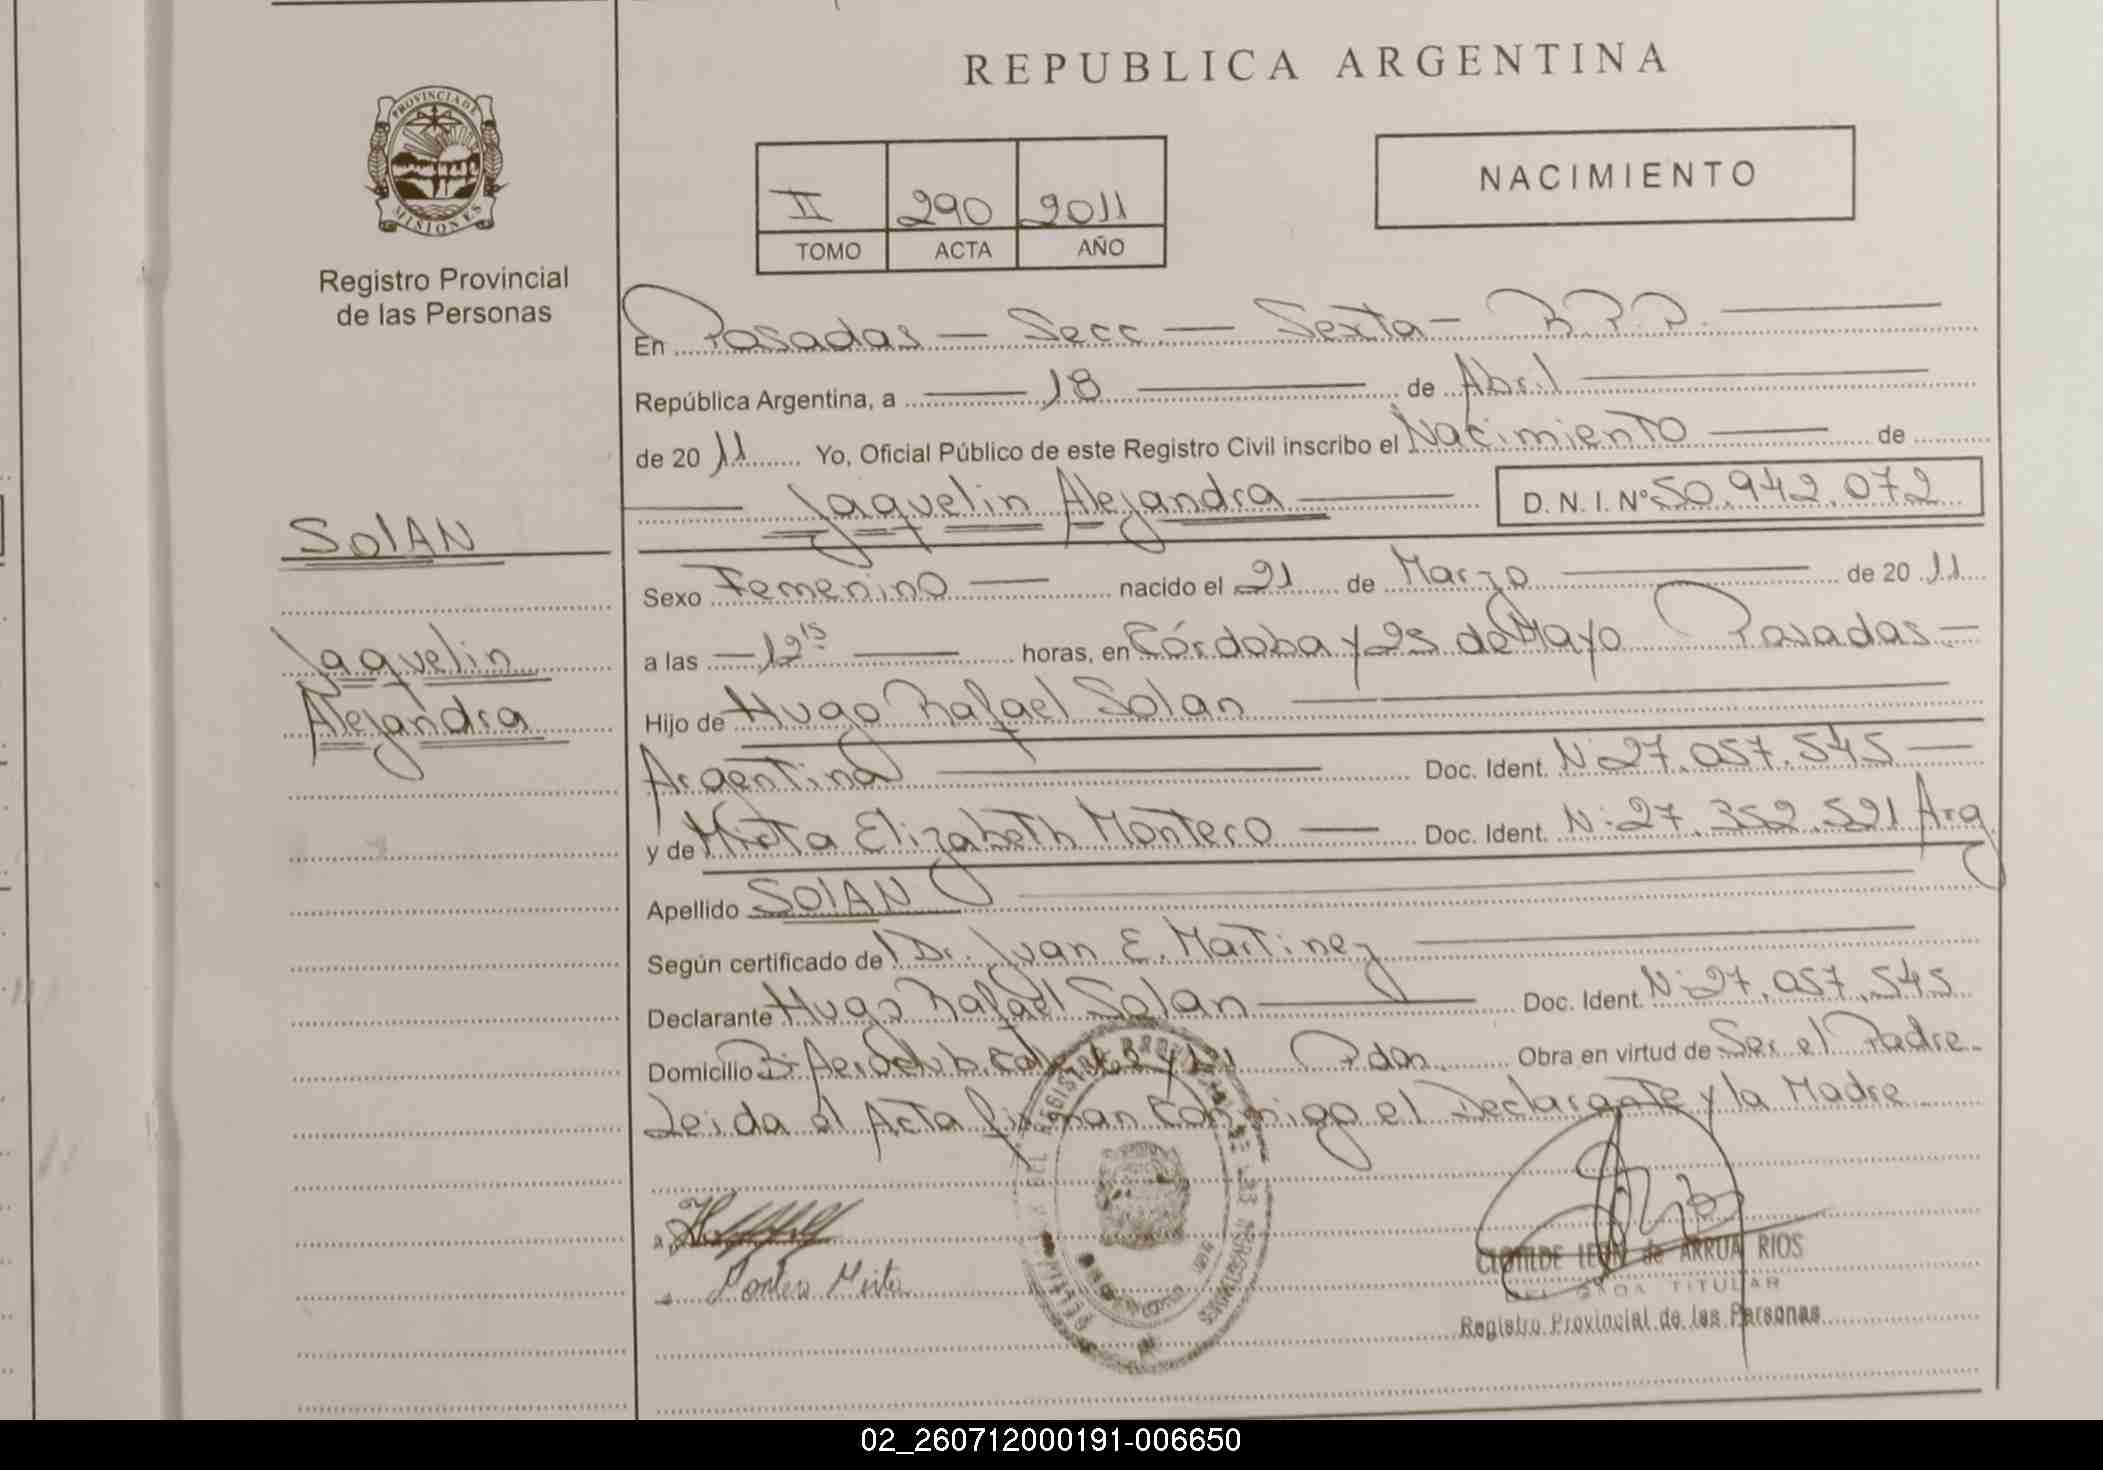 REPUBLICA ARGENTINA
PROVINCIA DE
MISIONES
Registro Provincial
de las Personas
NACIMIENTO
II 290 2011
TOMO ACTA AÑO
En Posadas - Secc - Sexta - R.P.P.
República Argentina, a 18 de Abril
de 2011 Yo, Oficial Público de este Registro Civil inscribo el Nacimiento de
Jaquelin Alejandra D.N.I. Nº 50.942.072
SolAN
Jaquelin
Alejandra
Sexo Femenino nacido el 21 de Marzo de 2011
a las 12 15 horas, en Córdoba y 25 de Mayo Posadas
Hijo de Hugo Rafael Solan
Argentina Doc. Ident. N: 27.057.545
y de Mirta Elizabeth Montero Doc. Ident. N: 27.352.521 Arg
Apellido SolAN
Según certificado de Dr. Ivan E. Martinez
Declarante Hugo Rafael Solan Doc. Ident. N: 27.057.545
Domicilio Pdas. Obra en virtud de Ser el Padre
Leida el Acta firman conmigo el Declarante y la Madre
Mirta
CLOTILDE LEON de ARRUA RIOS
TITULAR
Registro Provincial de las Personas
02_260712000191-006650